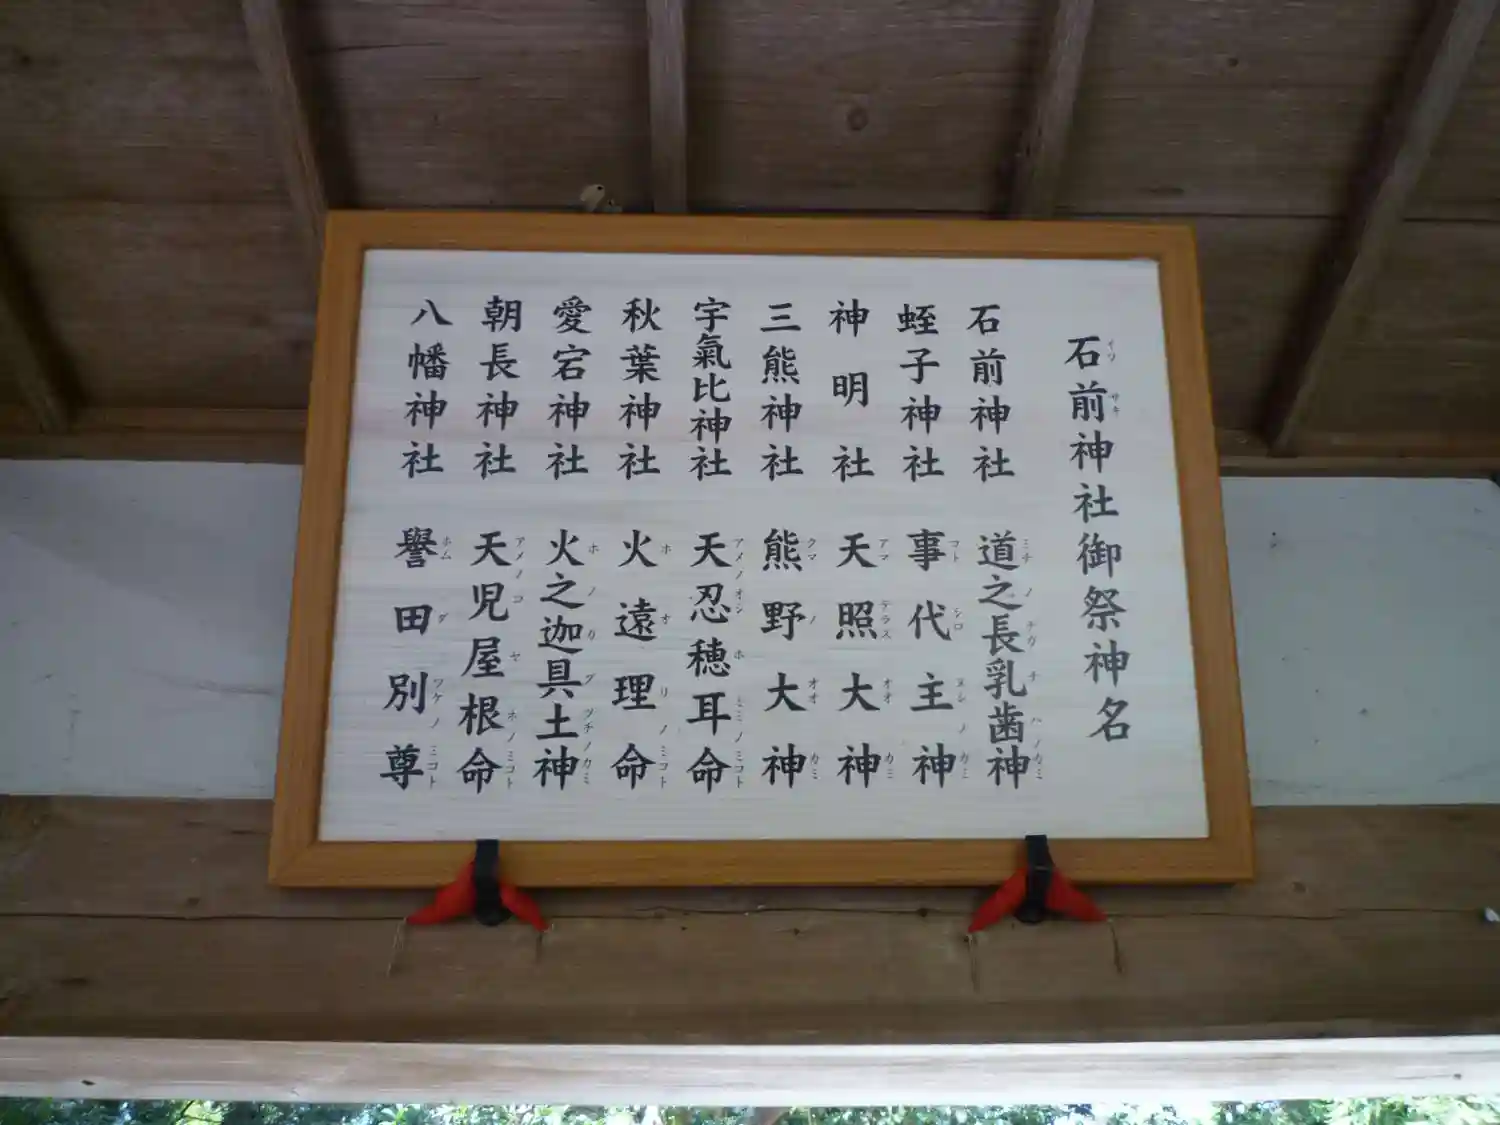 石前神社御祭神名
石前神社 道之長乳歯神
蛭子神社 事代主神
神明社 天照大神
三熊神社 熊野大神
宇氣比神社 天忍穂耳命
秋葉神社 火遠理命
愛宕神社 火之迦具土神
朝長神社 天児屋根命
八幡神社 譽田別尊